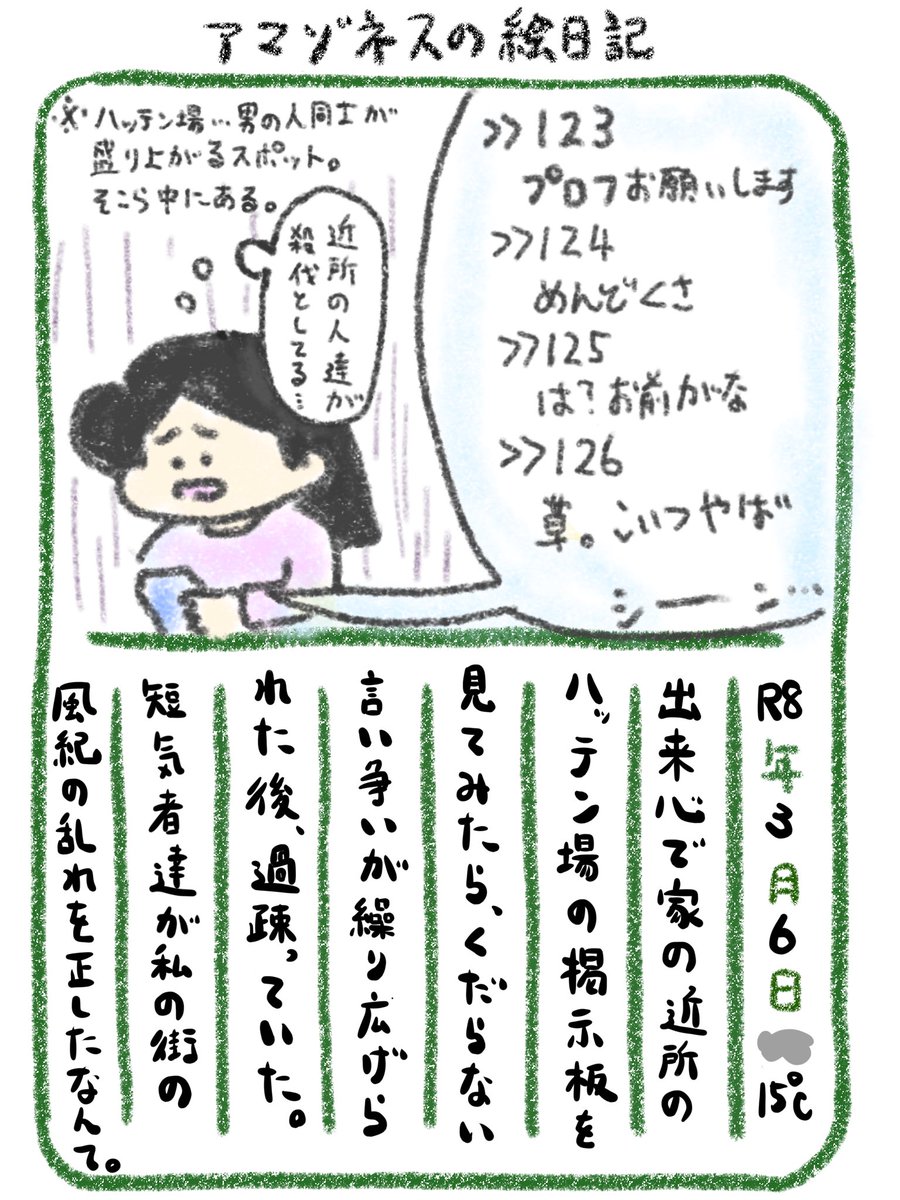 アマゾネスの絵日記
※ハッテン場…男の人同士が
盛り上がるスポット。
そこら中にある。
近所の人達が
殺伐としてる…
>>123
プロフお願いします
>>124
めんどくさ
>>125
は?お前がな
>>126
草。こいつやば
シーン…
R8年3月6日 15℃
出来心で家の近所の
ハッテン場の掲示板を
見てみたら、くだらない
言い争いが繰り広げら
れた後、過疎っていた。
短気者達が私の街の
風紀の乱れを正したなんて。